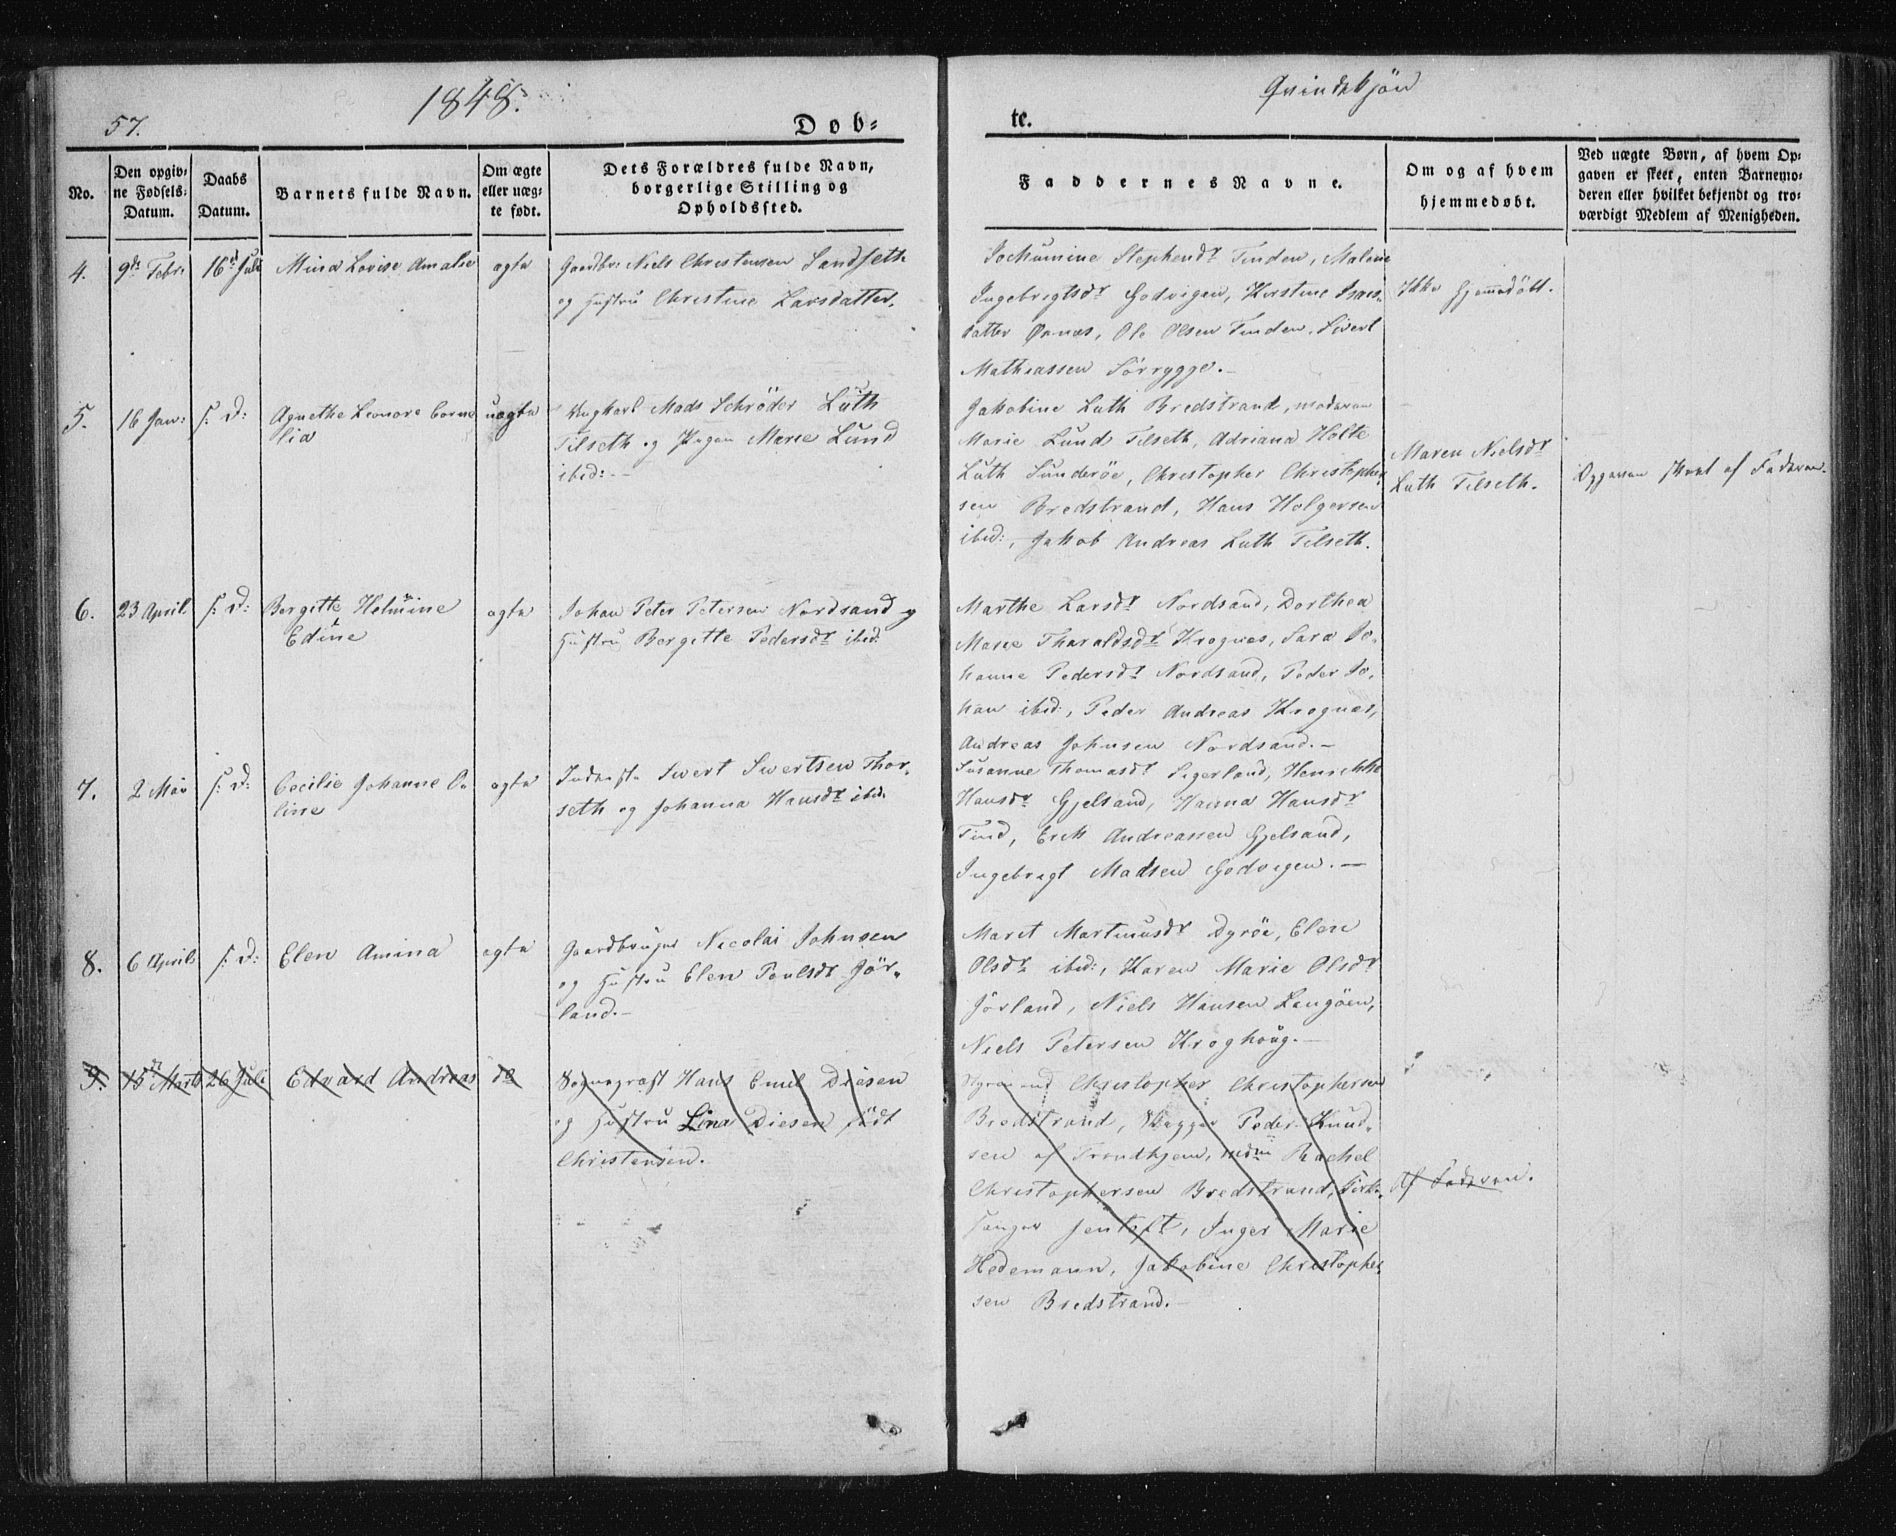 57.
1848.
Døb-
te.
Qvindekjön
No.
Den opgiv-
ne Fødsels-
Datum.
Daabs
Datum.
Barnets fulde Navn.
Om ægte
eller uæg-
te født.
Dets Forældres fulde Navn,
borgerlige Stilling og
Opholdssted.
Faddernes Navne.
Om og af hvem
hjemmedøbt.
Ved uægte Børn, af hvem Op-
gaven er skeet, enten Barnemo-
deren eller hvilket bekjendt og tro-
værdigt Medlem af Menigheden.
4.
9de Febr:
16d Juli
Mina Lovise Amalie
ægte
Gaardbr: Niels Christensen Sandseth
og Hustru Christine Larsdatter.
Jochumine Stephensdr Tinden, Malene
Ingebrigtsdr Godvigen, Kirstine Isaks-
datter Ørnæs, Ole Olsen Tinden, Sivert
Mathiassen Sörrygge.-
Ikke hjemmedöbt.
5.
16 Jan:
s: D:
Agnethe Leonore Corne
lia
uægte
Ungkarl Mads Schröder Luth
Tilseth og Pigen Marie Lund
ibid:-
Jakobine Luth Bredstrand, moderen
Marie Lund Tilseth, Adriana Holte
Luth Sunderöe, Christopher Christopher-
sen Bredstrand, Hans Holgersen
ibid:, Jakob Andreas Luth Tilseth.
Maren Nielsdr
Luth Tilseth.
Opgaven skeet af Faderen.
6.
23 April
s: D:
Bergitte Helmine
Edine
ægte
Johan Peter Petersen Nordsand og
Hustru Bergitte Pedersdr ibid:
Marthe Larsdr Nordsand, Dorthea
Marie Tharaldsdr Krognæs, Sara Jo-
hanne Pedersdr Nordsand, Peder Jo-
han ibid:, Peder Andreas Krognæs,
Andreas Johnsen Nordsand.-
7.
2 Mai
s: D:
Cecilie Johanne O-
line
ægte
Inderste Sivert Sivertsen Thor-
seth og Johanna Hansdr ibid:
Susanne Thomasdr Sigerland, Henrikke
Hansdr Gjelsand, Hanna Hansdr
Tind, Erik Andreassen Gjelsand,
Ingebrigt Madsen Godvigen.-
8.
6 April
s: D:
Elen Amina
ægte
Gaardbruger Nicolai Johnsen
og Hustru Elen Poulsdr Jör-
land.-
Marit Martinusdr Dyröe, Elen
Olsdr ibid:, Karen Marie Olsdr
Jörland, Niels Hansen Langöen,
Niels Petersen Kroghoug.-
9.
15de Marts
26 Juli
Edvard Andreas
do
Sognepræst Hans Emil Diesen
og Hustru Lina Diesen födt
Christensen.
Christopher Christophersen
Bredstrand, Peder Knud-
sen af Trondhjem, Rachel
Christophersen Bredstrand, Kirke-
sanger Jentoft, Inger Marie
Hedemann, Jakobine Christopher-
sen Bredstrand.-
Af Faderen.